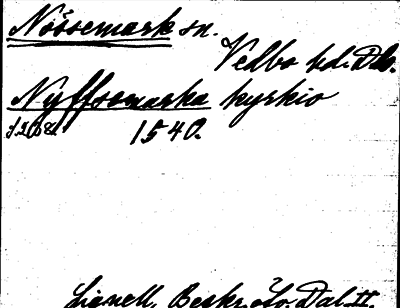 Nössemark sn.
Vedbo hd. Dls.
Nyffsemarka kyrkio
1540.
Lignell, Beskr. öv. Dal II.